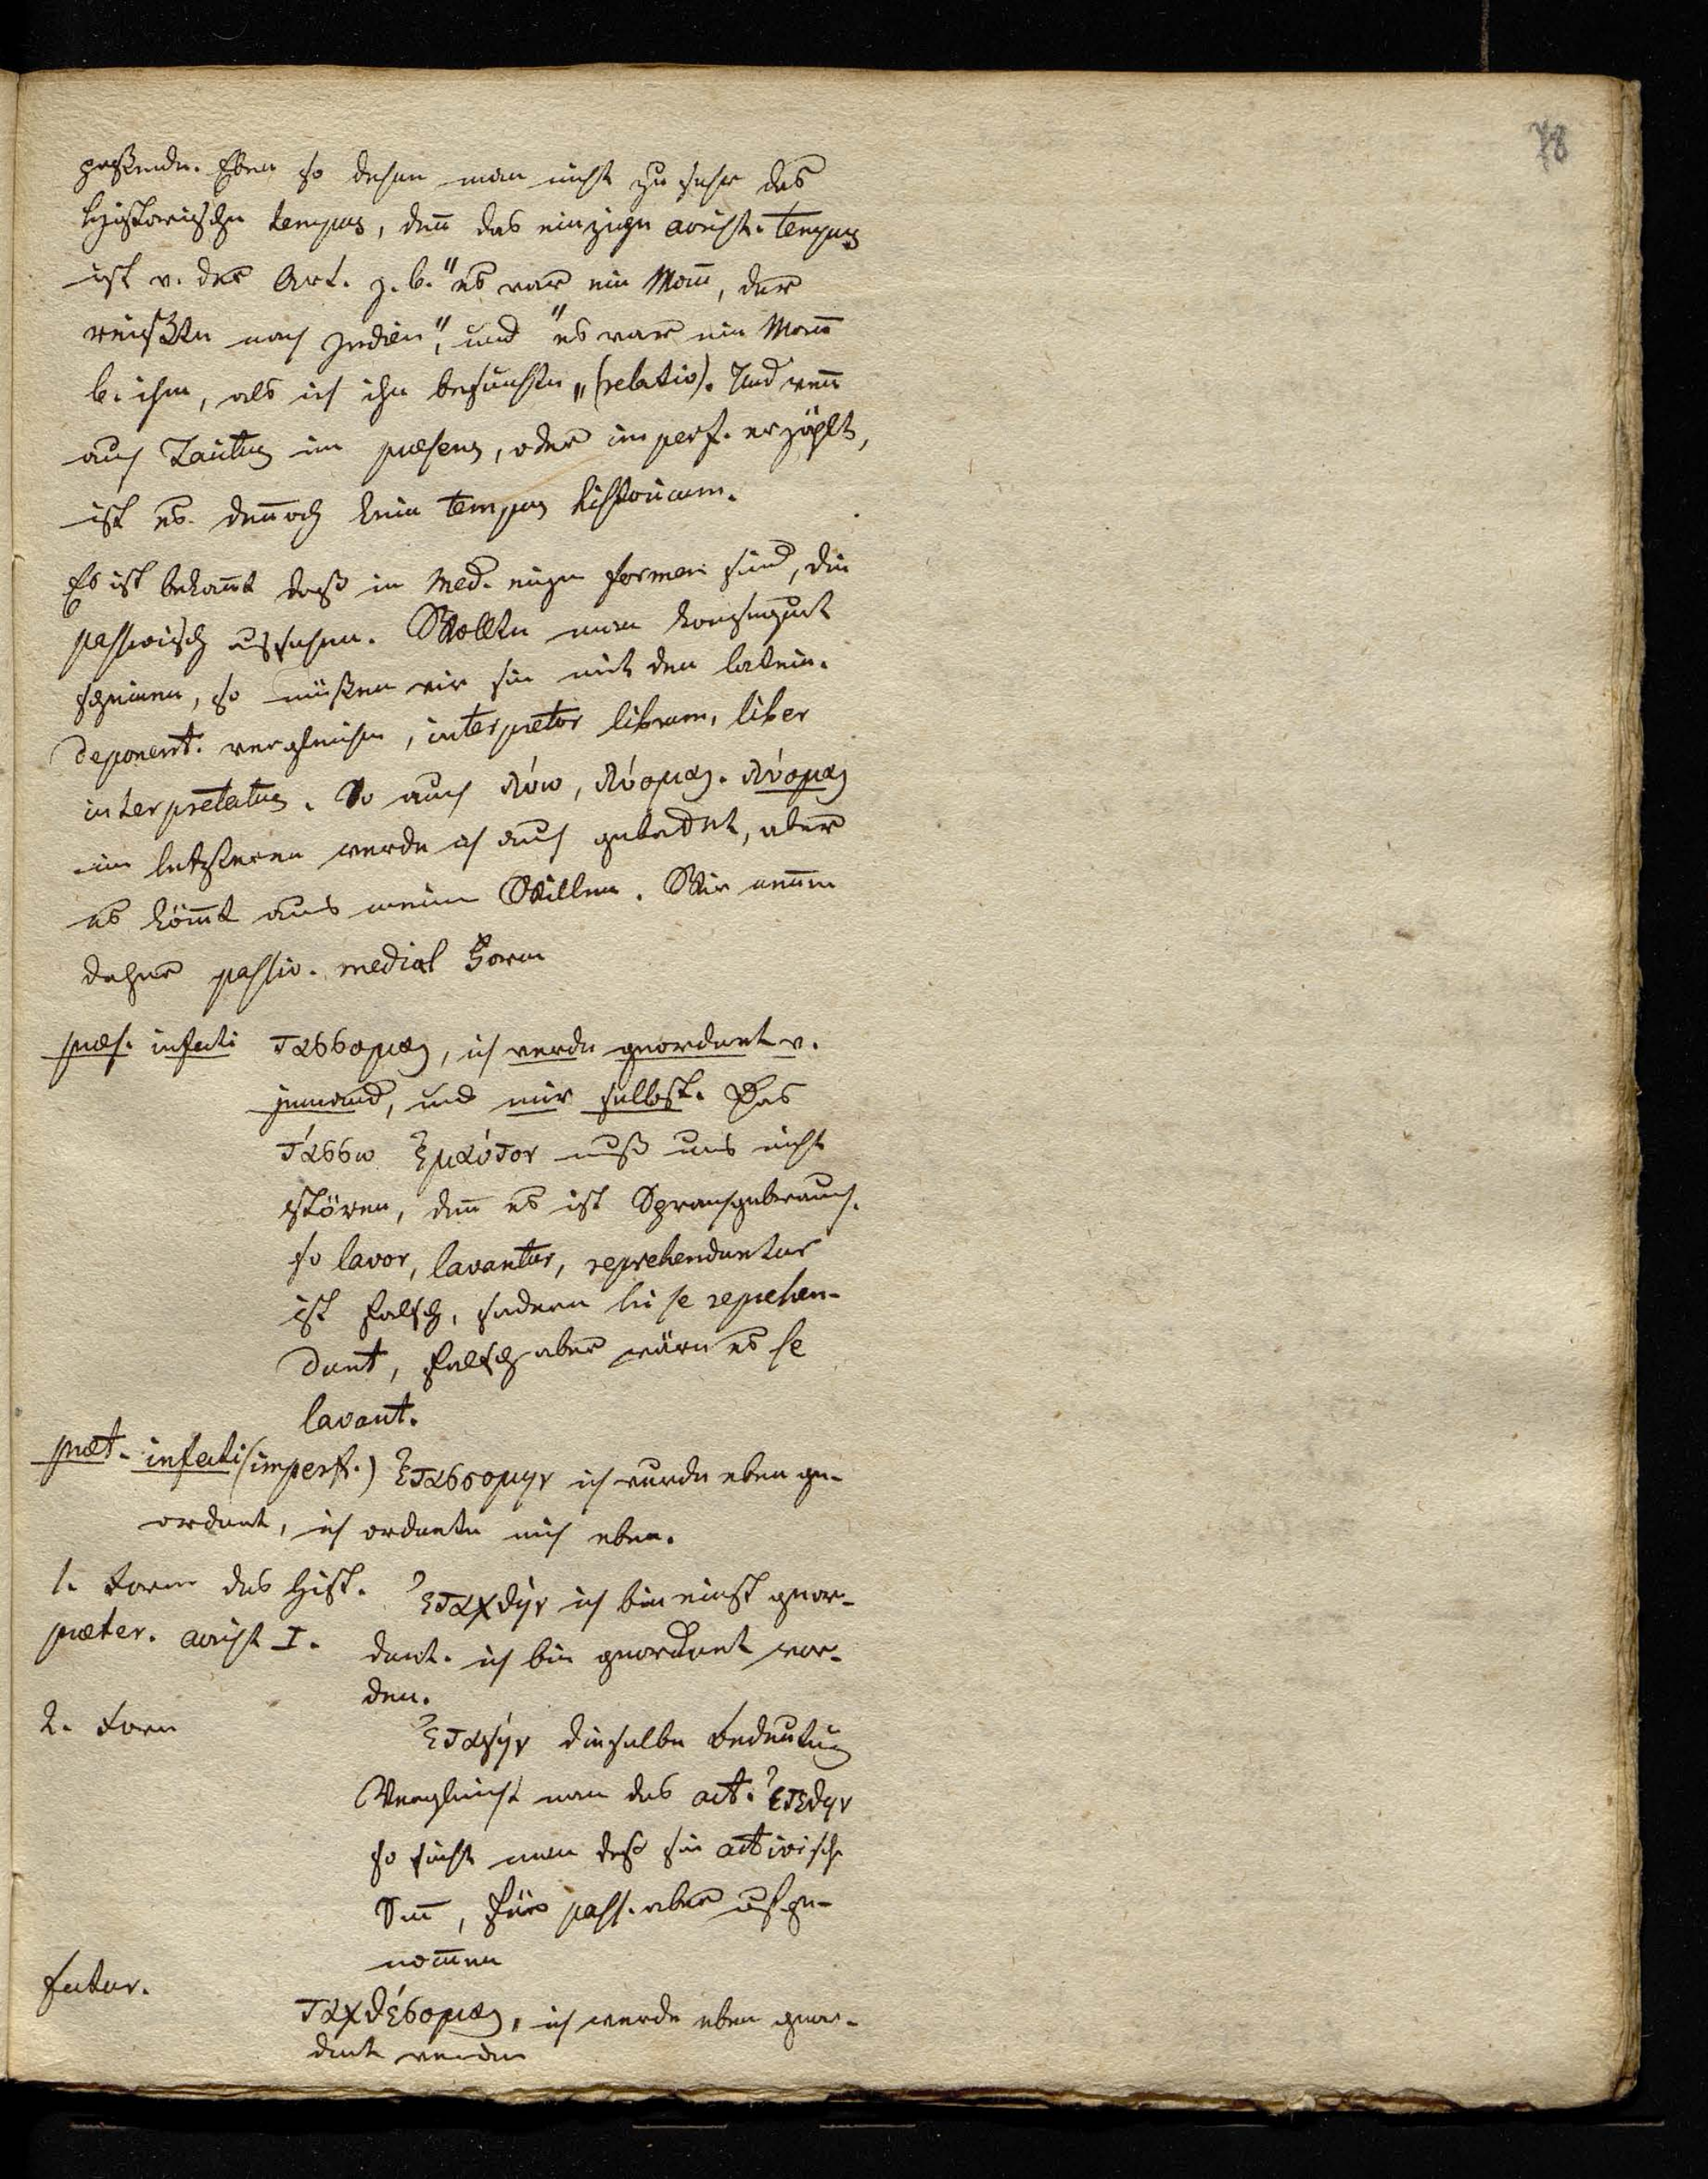 78
paßende. Eben so dehne man nicht zu sehr das
historische tempus, deñ das einzige aorist. tempus
ist v. der Art. z. b. "es war ein Mañ, der
reißte nach Indien", und "es war ein Mañ
bei ihm, als ich ihn besuchte" (relativ). Und weñ
auch Tacitus im praesens, oder imperf. erzählt,
ist es deñoch kein tempus historicum.
Es ist bekañt daß im Med. einige formen sind, die
passivisch aussehen. Wollten wir
scheinen, so müßen wir sie mit den latein.
deponent. vergleichen, interpretor librum, liber
interpretatus. So auch λύω, λύομαι. λύομαι
im letzteren werde ich auch gebadet, aber
es köm̃t aus meinem Willen. Wir neñen
daher passiv. medial Form
praes. infecti τασσομαι, ich werde geordnet v.
jemand, und mir selbst. Das
τάσσω ἐμαύτον muß uns nicht
stören, deñ es ist Sprachgebrauch.
so lavor, lavantur, reprehenduntur
ist falsch, sondern hi se reprehen-
dunt, falsch aber wäre es se
lavant.
praet. infecti (imperf.) ἐτασσομην ich wurde eben ge-
ordnet, ich ordnete mich eben.
1. Form des hist.
praeter. aorist I. ἐταχθήν ich bin einst geor-
dnet. ich bin geordnet wor-
den.
2. Form ἐταγήν dieselbe Bedeutung
Vergleicht man das act. ἐτεθην
so sieht man daß sie activische
Sim̃, fürs pass. aber aufge-
nom̃en
futur. ταχθέσομαι, ich werde eben geor-
dnet werden